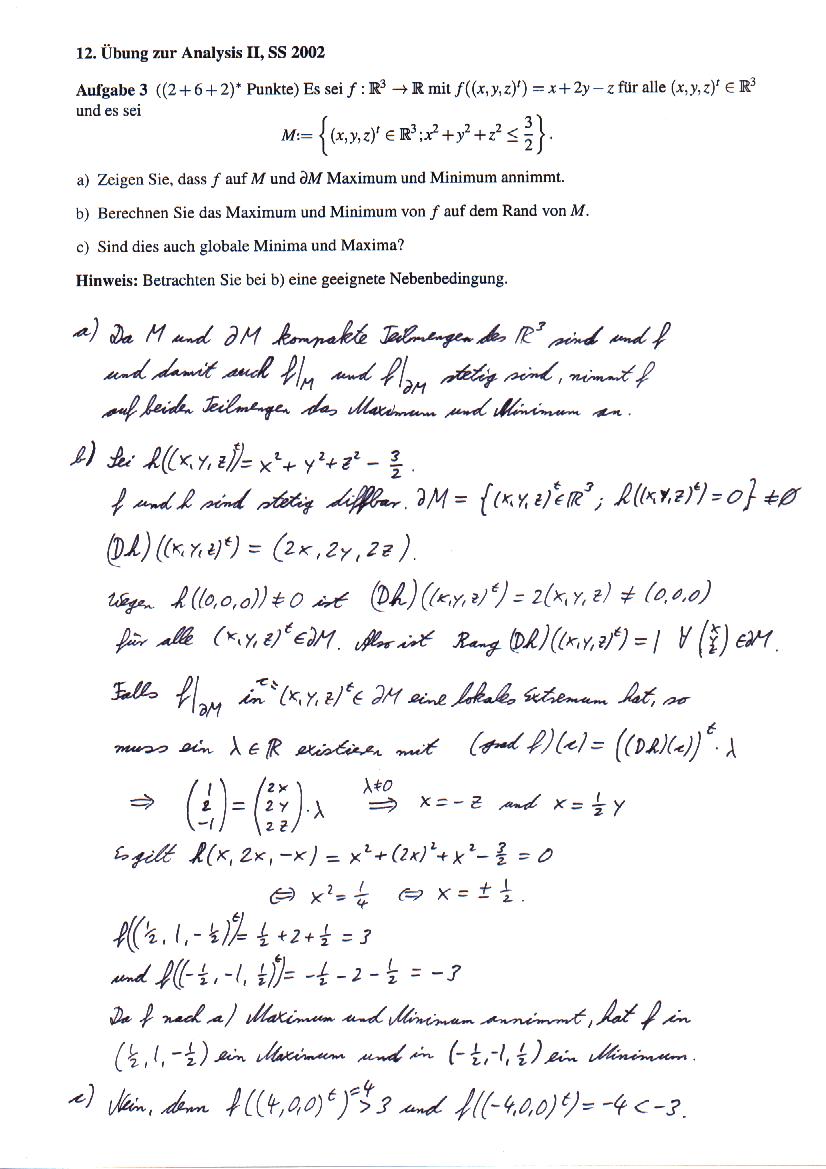 12. Übung zur Analysis II, SS 2002
Aufgabe 3 ((2+6+2)* Punkte) Es sei f : ℝ³ → ℝ mit f((x,y,z)ᵗ) = x+2y−z für alle (x,y,z)ᵗ ∈ ℝ³
und es sei
M := {(x,y,z)ᵗ ∈ ℝ³; x²+y²+z² ≤ 3/2}.
a) Zeigen Sie, dass f auf M und ∂M Maximum und Minimum annimmt.
b) Berechnen Sie das Maximum und Minimum von f auf dem Rand von M.
c) Sind dies auch globale Minima und Maxima?
Hinweis: Betrachten Sie bei b) eine geeignete Nebenbedingung.
a) Da M und ∂M kompakte Teilmengen des ℝ³ sind und f
und damit auch f|_M und f|_∂M stetig sind, nimmt f
auf beiden Teilmengen das Maximum und Minimum an.
b) Sei h((x,y,z)ᵗ) = x² + y² + z² − 3/2.
f und h sind stetig diffbar. ∂M = {(x,y,z)ᵗ ∈ ℝ³; h((x,y,z)ᵗ) = 0} ≠ ∅
(Dh)((x,y,z)ᵗ) = (2x, 2y, 2z).
Wegen h((0,0,0)) ≠ 0 ist (Dh)((x,y,z)ᵗ) = 2(x,y,z) ≠ (0,0,0)
für alle (x,y,z)ᵗ ∈ ∂M. Also ist Rang (Dh)((x,y,z)ᵗ) = 1 ∀ (x y z) ∈ ∂M.
Falls f|_∂M in c:=(x,y,z)ᵗ ∈ ∂M eine lokales Extremum hat, so
muss ein λ ∈ ℝ existieren mit (grad f)(c) = ((Dh)(c))ᵗ · λ
⇒ (1 2 −1) = (2x 2y 2z) · λ ⇒ λ≠0 x = −z und x = 1/2 y
Es gilt h(x, 2x, −x) = x² + (2x)² + x² − 3/2 = 0
⇔ x² = 1/4 ⇔ x = ± 1/2.
f((1/2, 1, −1/2)ᵗ) = 1/2 + 2 + 1/2 = 3
und f((−1/2, −1, 1/2)ᵗ) = −1/2 − 2 − 1/2 = −3
Da f nach a) Maximum und Minimum annimmt, hat f in
(1/2, 1, −1/2) ein Maximum und in (−1/2, −1, 1/2) ein Minimum.
c) Nein, denn f((4,0,0)ᵗ) = 4 > 3 und f((−4,0,0)ᵗ) = −4 < −3.